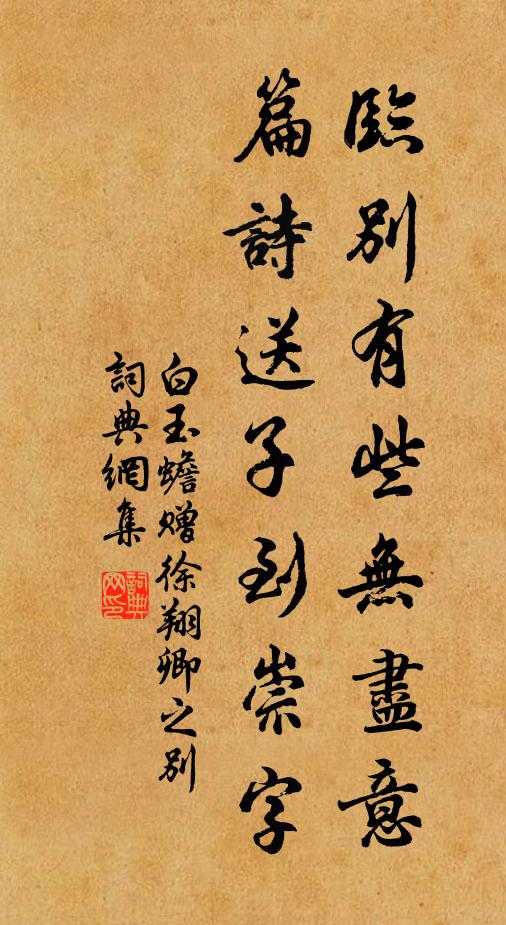 臨別有些無盡意
篇詩送子到崇字
白玉蟾贈徐翔卿之別
詞典網集
詞典网印